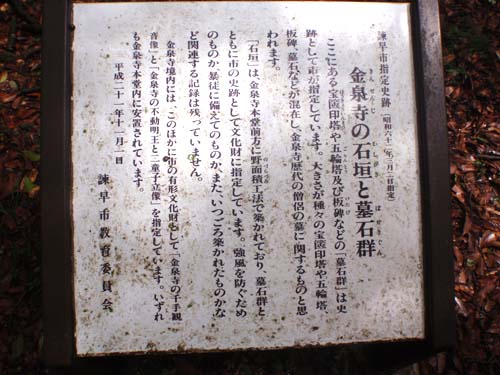 諫早市指定史跡（昭和六十二年三月三日指定）
金泉寺の石垣と墓石群
きんせんじ いしがき ぼせきぐん
ここにある宝篋印塔や五輪塔及び板碑などの「墓石群」は史
跡として市が指定しています。大きさが種々の宝篋印塔や五輪塔、
板碑、墓石などが混在し、金泉寺歴代の僧侶の墓に関するものと思
われます。
「石垣」は、金泉寺本堂前方に野面積工法で築かれており、墓石群と
ともに市の史跡として文化財に指定しています。強風を防ぐため
のものか、暴徒に備えてのものか、また、いつごろ築かれたものかな
ど関連する記録は残っていません。
金泉寺境内には、このほかに市の有形文化財として「金泉寺の千手観
音像」と「金泉寺の不動明王と二童子立像」を指定しています。いずれ
も金泉寺本堂内に安置されています。
平成二十一年十一月一日
諫早市教育委員会